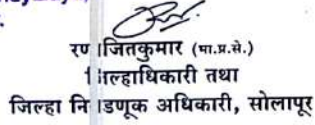 रणजितकुमार (भा.प्र.से.)
जिल्हाधिकारी तथा
जिल्हा निवडणूक अधिकारी, सोलापूर